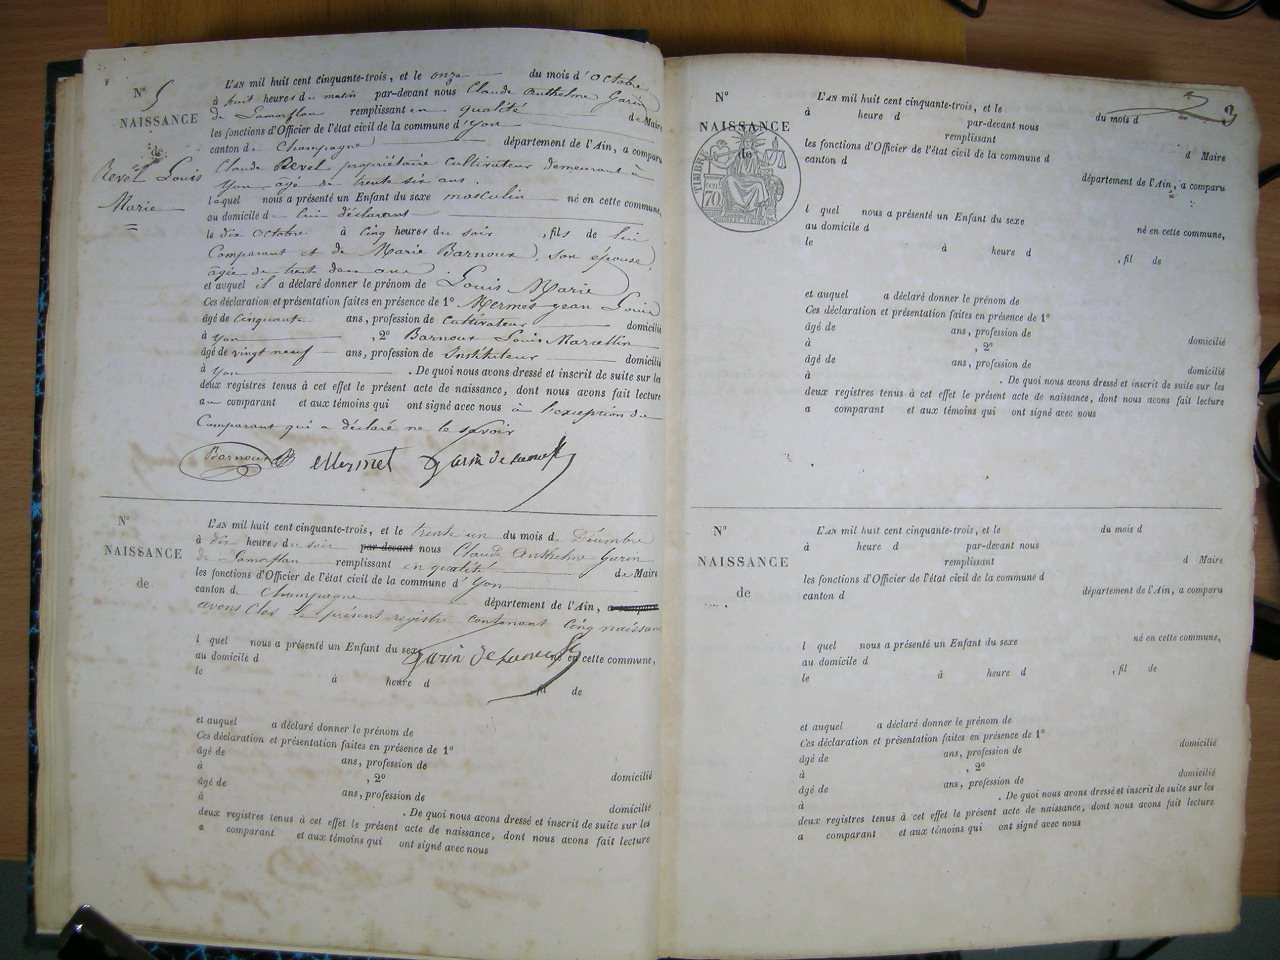 N° 5
NAISSANCE
de
Revel Louis
Marie
L'AN mil huit cent cinquante-trois, et le onze du mois d'Octobre
à huit heures du matin par-devant nous Claude Anthelme Garin
de Lamorflan remplissant en qualité de Maire
les fonctions d'Officier de l'état civil de la commune d'Yon
canton de Champagne département de l'Ain, a comparu
Claude Revel propriétaire cultivateur demeurant à
Yon âgé de trente six ans.
lequel nous a présenté un Enfant du sexe masculin né en cette commune,
au domicile de lui déclarant
le dix Octobre à cinq heures du soir, fils de lui
Comparant et de Marie Barnoux, son épouse,
âgée de trente deux ans
et auquel il a déclaré donner le prénom de Louis Marie
Ces déclaration et présentation faites en présence de 1° Mermet Jean Louis
âgé de cinquante ans, profession de cultivateur domicilié
à Yon, 2° Barnoux Louis Marcellin
âgé de vingt neuf ans, profession de Instituteur domicilié
à Yon. De quoi nous avons dressé et inscrit de suite sur les
deux registres tenus à cet effet le présent acte de naissance, dont nous avons fait lecture
au comparant et aux témoins qui ont signé avec nous à l'exception du
Comparant qui a déclaré ne le savoir
Barnoux Mermet Garin de Lamorflan
N°
NAISSANCE
de
L'AN mil huit cent cinquante-trois, et le trente un du mois de Décembre
à dix heures du soir par-devant nous Claude Anthelme Garin
de Lamorflan remplissant en qualité de Maire
les fonctions d'Officier de l'état civil de la commune d'Yon
canton de Champagne département de l'Ain, a comparu
avons Clos le présent registre contenant cinq naissances
l quel nous a présenté un Enfant du sexe né en cette commune,
Garin de Lamorflan
au domicile d
le à heure d , fil de
et auquel a déclaré donner le prénom de
Ces déclaration et présentation faites en présence de 1°
âgé de ans, profession de domicilié
à , 2°
âgé de ans, profession de domicilié
à . De quoi nous avons dressé et inscrit de suite sur les
deux registres tenus à cet effet le présent acte de naissance, dont nous avons fait lecture
a comparant et aux témoins qui ont signé avec nous
N°
NAISSANCE
de
TIMBRE
70
L'AN mil huit cent cinquante-trois, et le du mois d
à heure d par-devant nous
remplissant d Maire
les fonctions d'Officier de l'état civil de la commune d
canton d département de l'Ain, a comparu
l quel nous a présenté un Enfant du sexe né en cette commune,
au domicile d
le à heure d , fil de
et auquel a déclaré donner le prénom de
Ces déclaration et présentation faites en présence de 1°
âgé de ans, profession de domicilié
à , 2°
âgé de ans, profession de domicilié
à . De quoi nous avons dressé et inscrit de suite sur les
deux registres tenus à cet effet le présent acte de naissance, dont nous avons fait lecture
a comparant et aux témoins qui ont signé avec nous
N°
NAISSANCE
de
L'AN mil huit cent cinquante-trois, et le du mois d
à heure d par-devant nous
remplissant d Maire
les fonctions d'Officier de l'état civil de la commune d
canton d département de l'Ain, a comparu
l quel nous a présenté un Enfant du sexe né en cette commune,
au domicile d
le à heure d , fil de
et auquel a déclaré donner le prénom de
Ces déclaration et présentation faites en présence de 1°
âgé de ans, profession de domicilié
à , 2°
âgé de ans, profession de domicilié
à . De quoi nous avons dressé et inscrit de suite sur les
deux registres tenus à cet effet le présent acte de naissance, dont nous avons fait lecture
a comparant et aux témoins qui ont signé avec nous